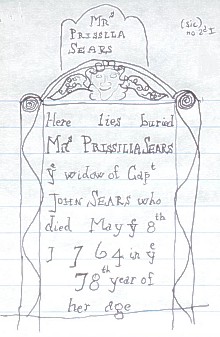 Mrs
PRISSILA
SEARS
(sic)
no 2d I
Here lies buried
Mrs PRISSILA SEARS
ye widow of Capt
JOHN SEARS who
died May ye 8th
1764 in ye
78th year of
her age